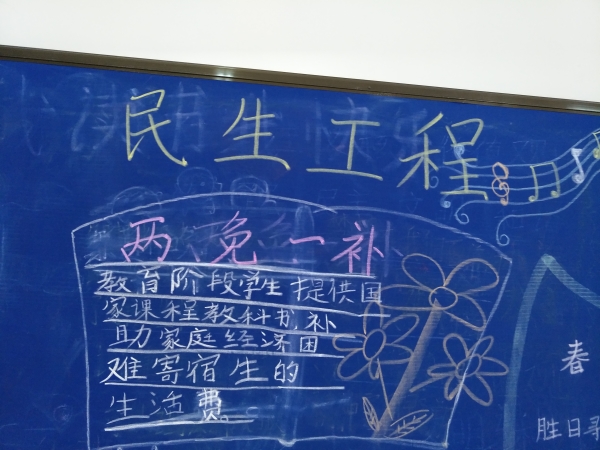 民生工程
两免一补
教育阶段学生提供国
家课程教科书,补
助家庭经济困
难寄宿生的
生活费
春
胜日寻